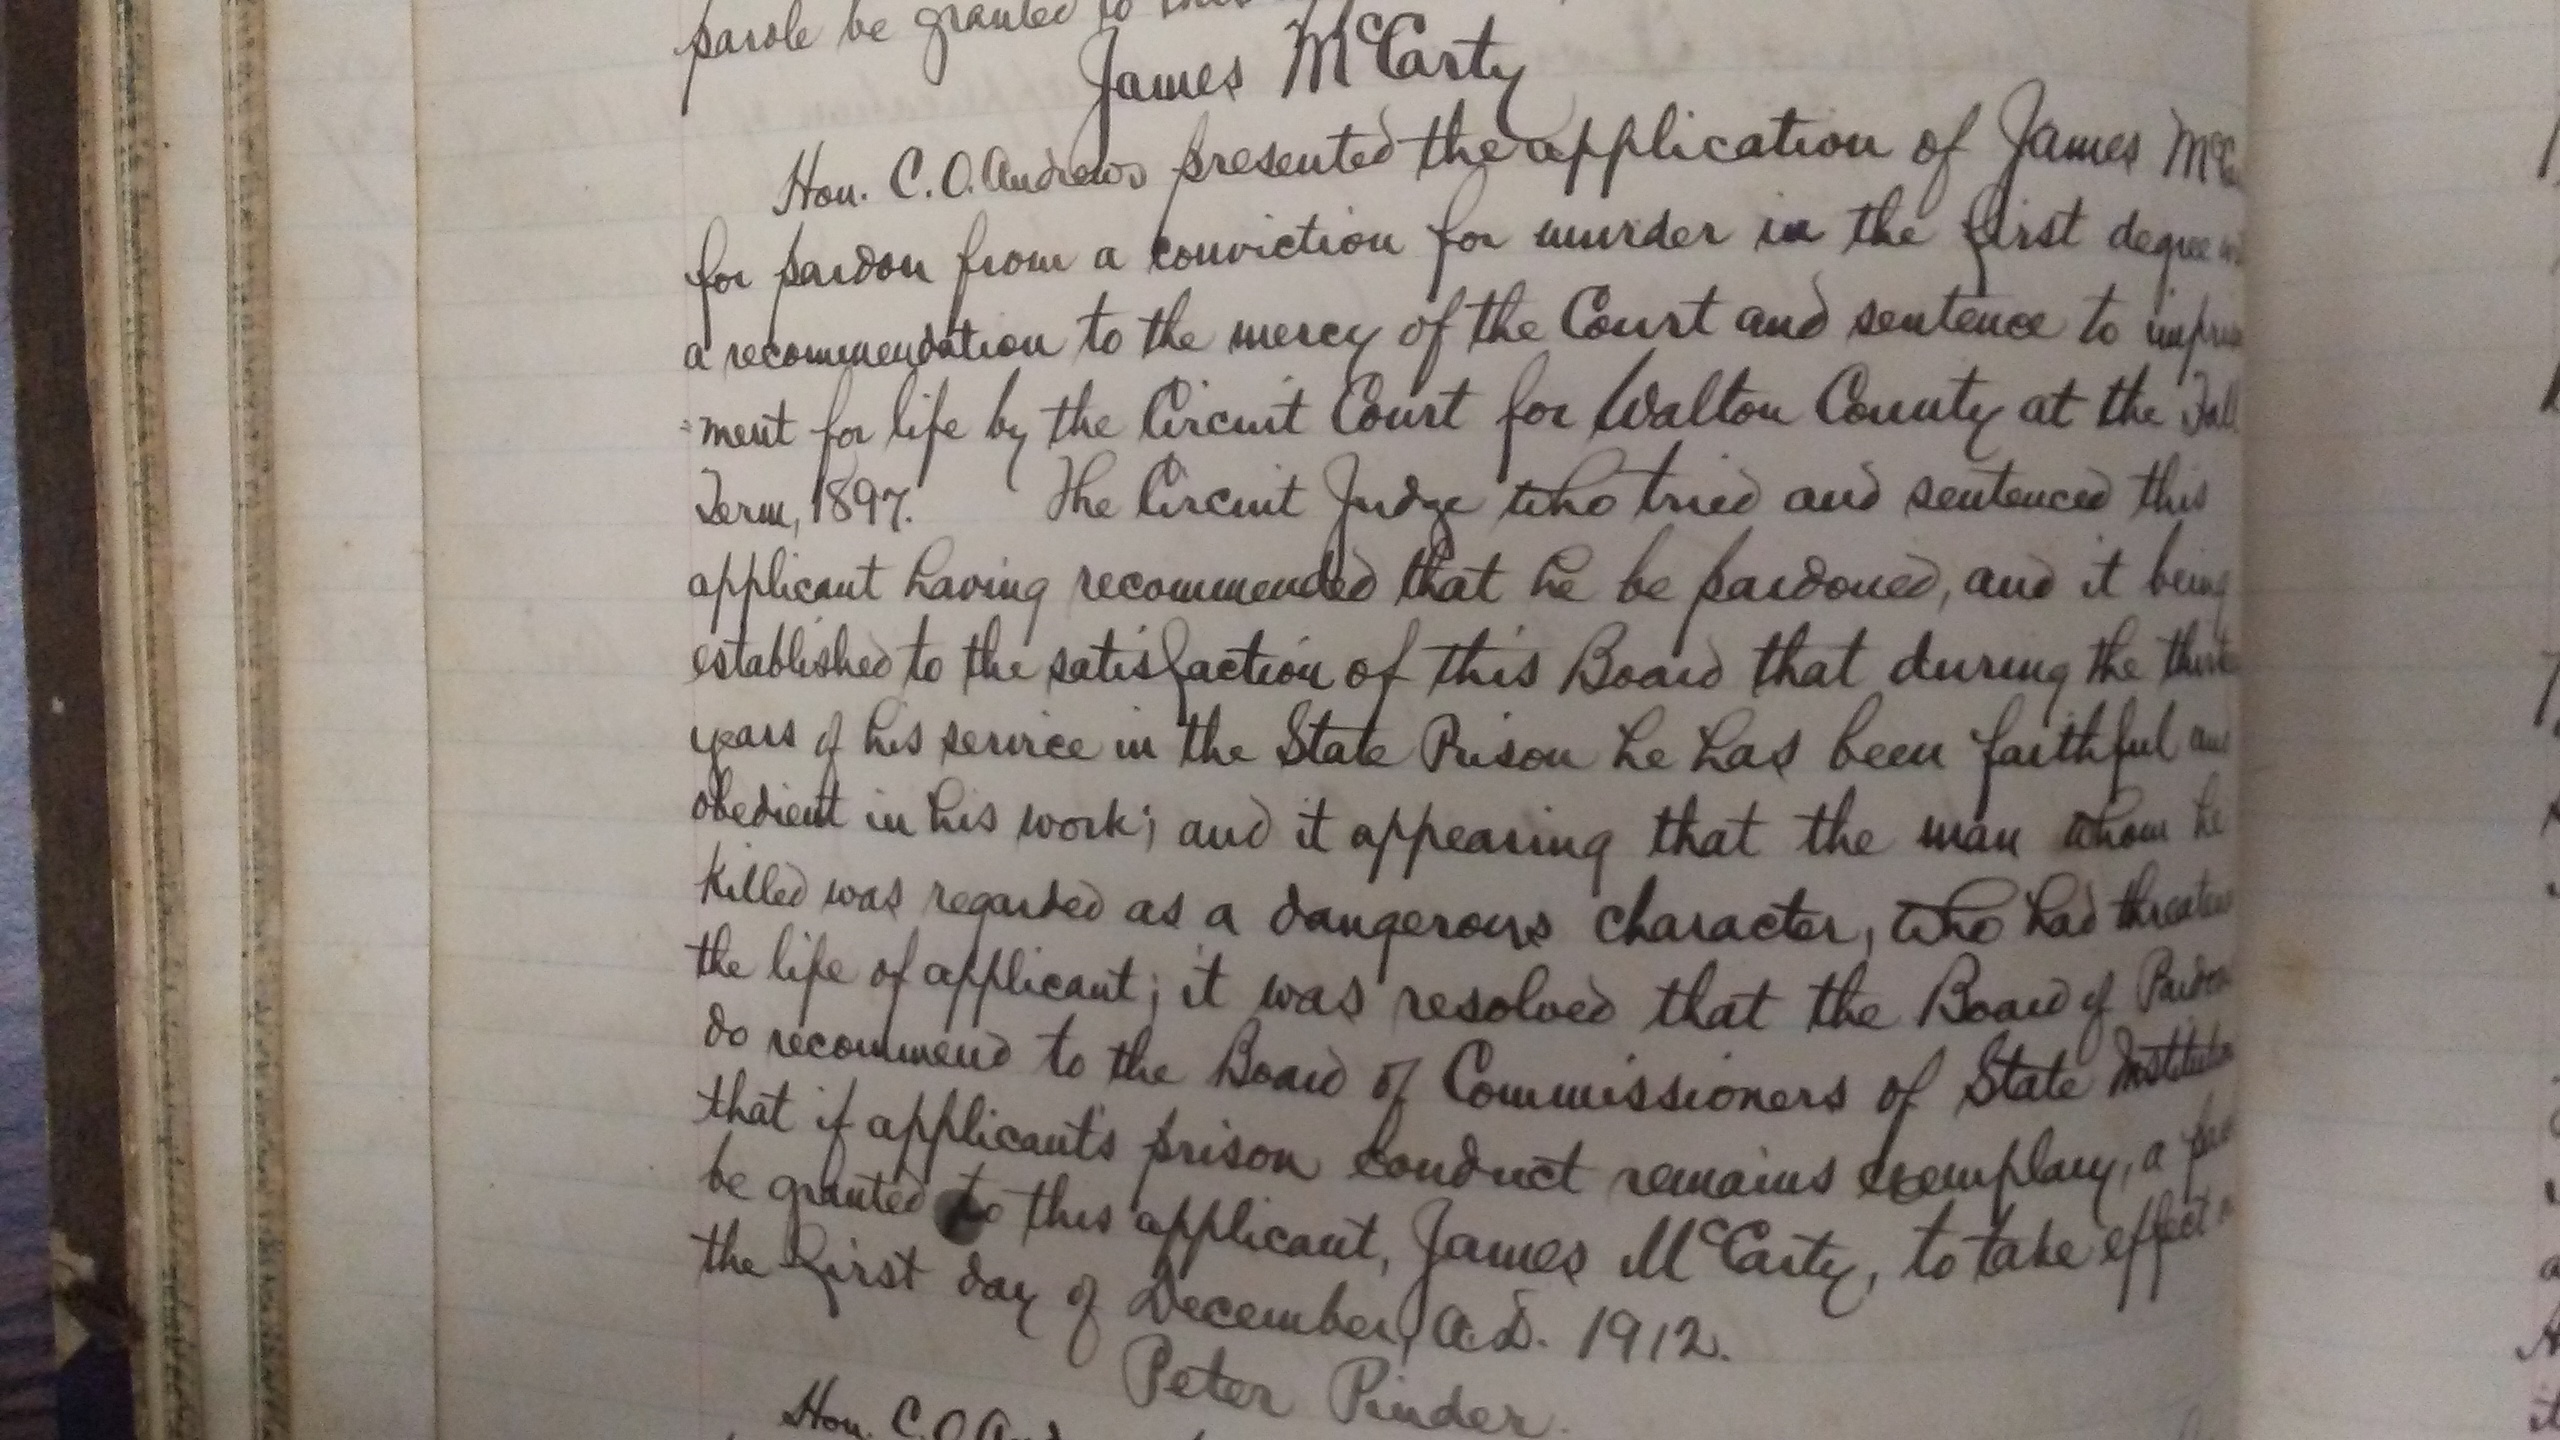 parole be granted to this
James McCarty
Hon. C. O. Andrews presented the application of James McCa
for pardon from a conviction for murder in the first degree wi
a recommendation to the mercy of the Court and sentence to impris
=ment for life by the Circuit Court for Walton County at the Fall
Term, 1897. The Circuit Judge who tried and sentenced this
applicant having recommended that he be pardoned, and it being
established to the satisfaction of this Board that during the
years of his service in the State Prison he has been faithful and
obedient in his work; and it appearing that the man whom he
killed was regarded as a dangerous character, who had threaten
the life of applicant; it was resolved that the Board of Pardon
do recommend to the Board of Commissioners of State Institution
that if applicant's prison conduct remains exemplary, a par
be granted to this applicant, James McCarty, to take effect o
the first day of December, A.D. 1912.
Peter Pinder.
Hon. C. O. And